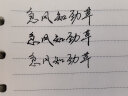 急风知劲草
急风知劲草
急风知劲草